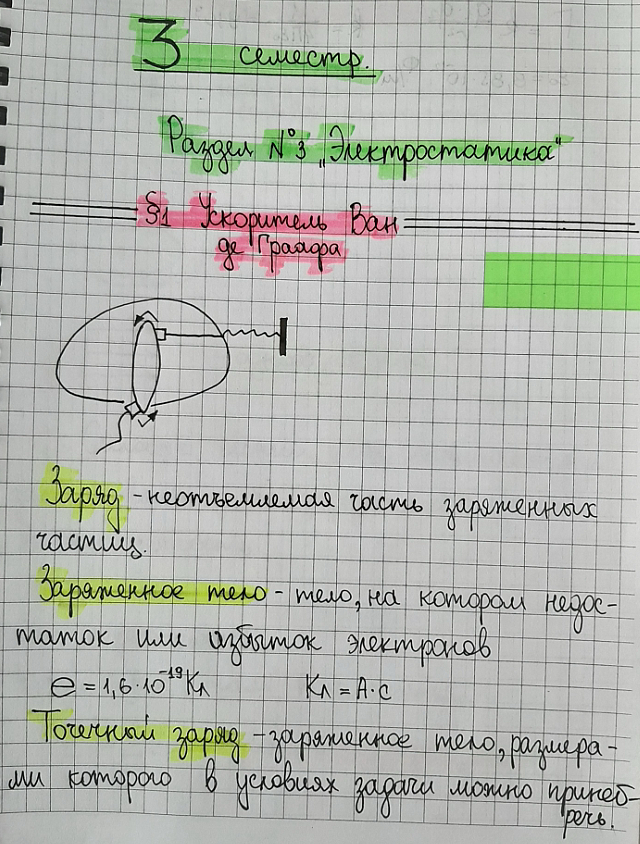 3 семестр.
Раздел №3 „Электростатика"
§1 Ускоритель Ван
де Граафа
Заряд - неотъемлемая часть заряженных
частиц.
Заряженное тело - тело, на котором недос-
таток или избыток электронов
e = 1,6·10⁻¹⁹Кл Кл = А·с
Точечный заряд - заряженное тело, размера-
ми которого в условиях задачи можно принеб-
речь.